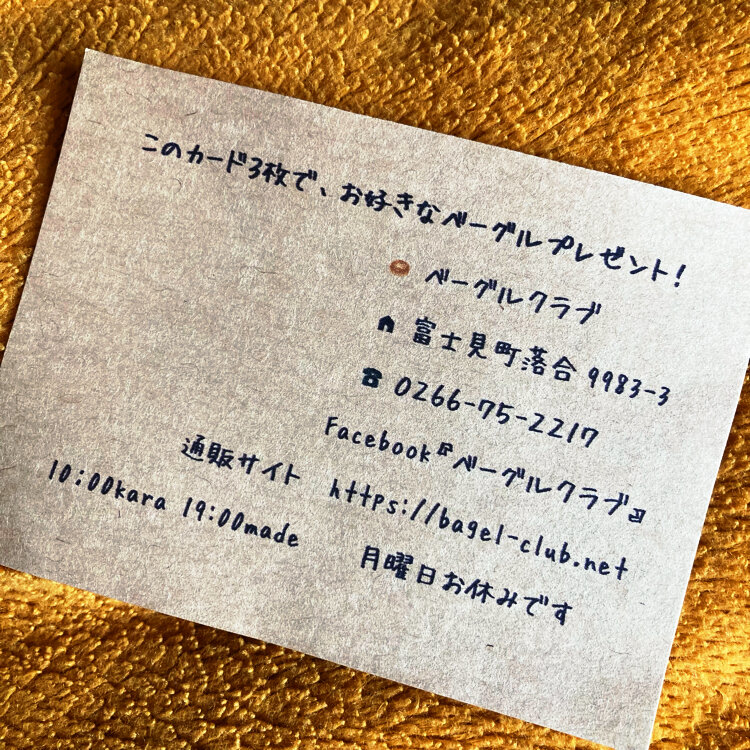 このカード3枚で、お好きなベーグルプレゼント!
ベーグルクラブ
富士見町落合9983-3
0266-75-2217
Facebook『ベーグルクラブ』
通販サイト https://bagel-club.net
10:00kara 19:00made 月曜日お休みです